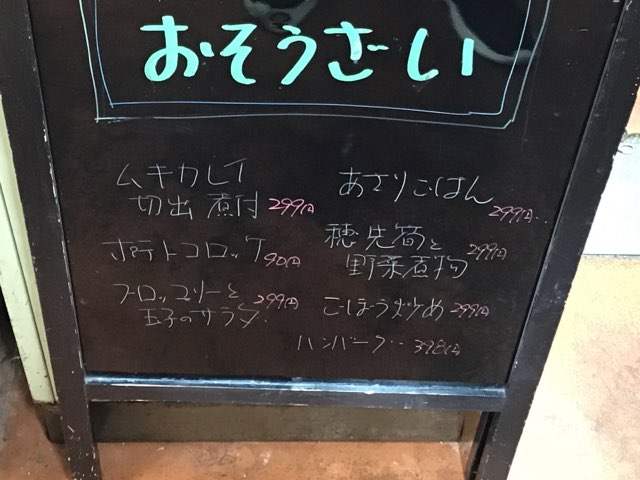 おそうざい
ムキカレイ
切出煮付 299円
ポテトコロッケ 90円
ブロッコリーと
玉子のサラダ 299円
あさりごはん
299円..
穂先筍と
野菜煮物 299円
ごぼう炒め 299円
ハンバーグ.. 398円